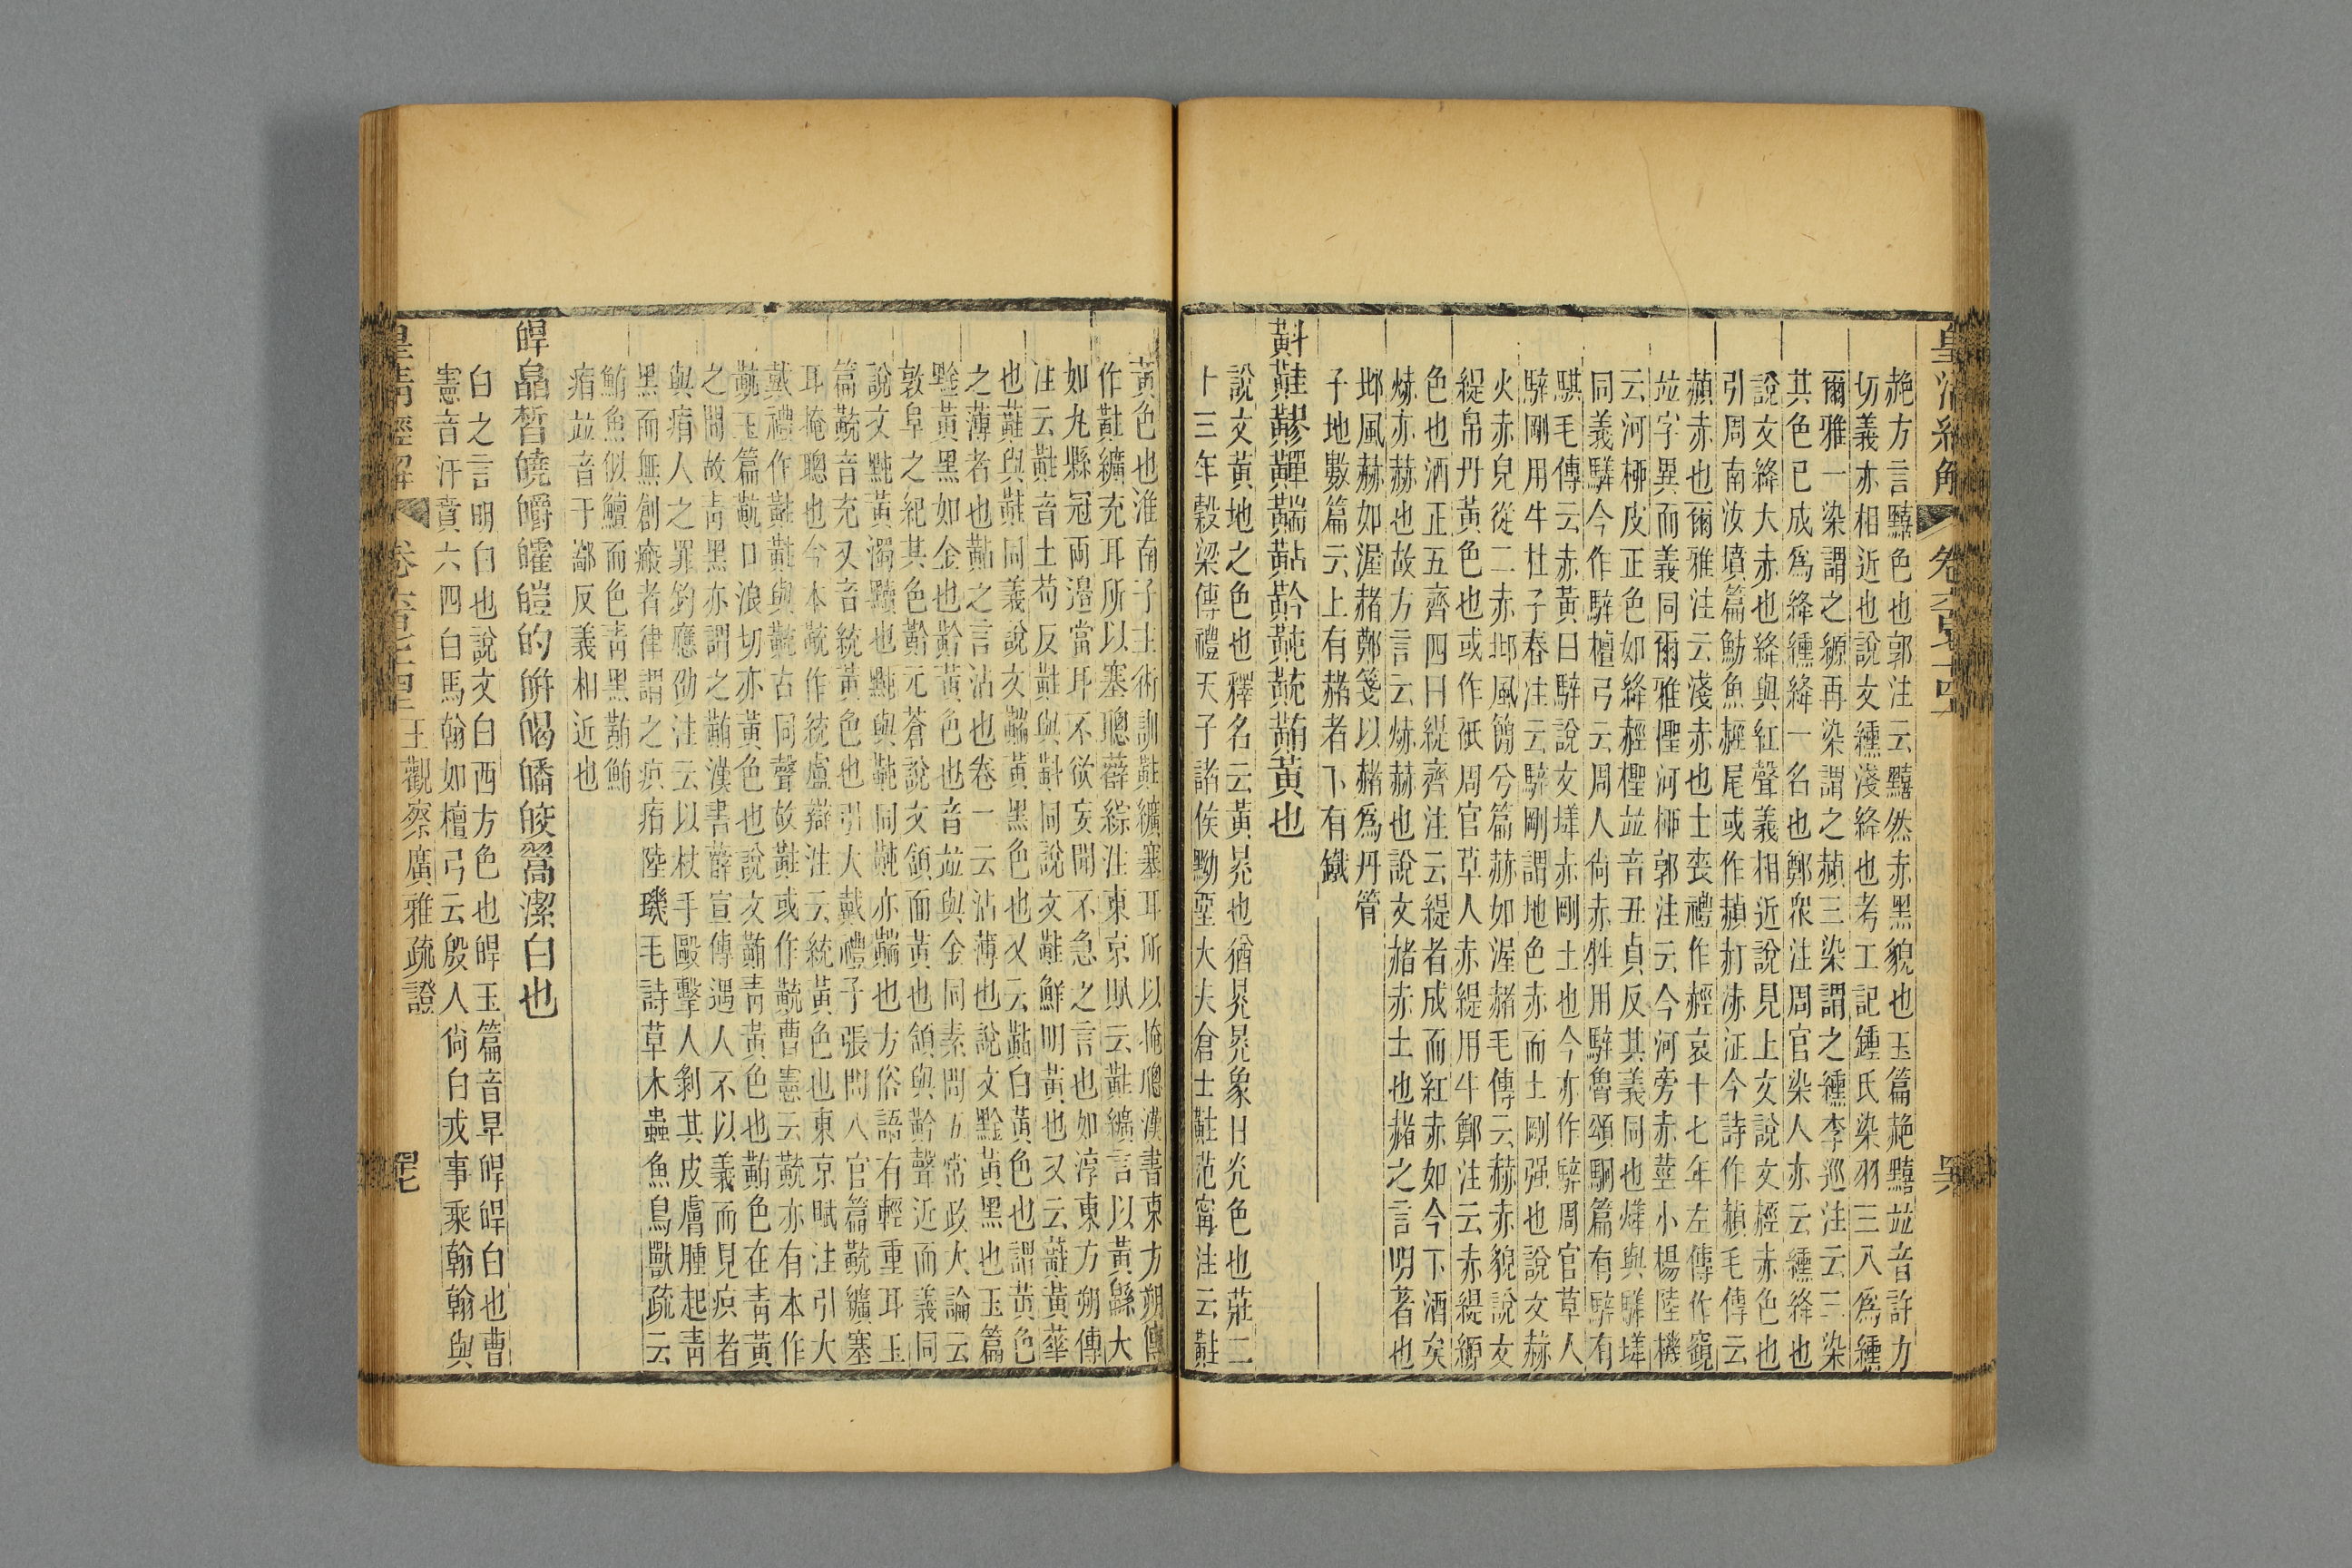 皇清經解 卷六百七十四
赩方言䵱色也郭注云䵱然赤黑貌也玉篇赩䵱竝音許力
切義亦相近也說文纁淺絳也考工記鍾氏染羽三入爲纁
爾雅一染謂之縓再染謂之赬三染謂之纁李巡注云三染
其色已成爲絳纁絳一名也鄭衆注周官染人亦云纁絳也
說文絳大赤也絳與紅聲義相近說見上文說文經赤色也
引周南汝墳篇魴魚䞓尾或作赬㓚浾泟今詩作赬毛傳云
赬赤也爾雅注云淺赤也士喪禮作䞓哀十七年左傳作窺
竝字異而義同爾雅檉河柳郭注云今河旁赤莖小楊陸機
云河柳皮正色如絳䞓檉竝音丑貞反其義同也㷣與騂垟
同義騂今作騂檀弓云周人尙赤牲用騂魯頌駉篇有騂有
騏毛傳云赤黃曰騂說文垟赤剛土也今亦作騂周官草人
騂剛用牛杜子春注云騂剛謂地色赤而土剛强也說文赫
火赤皃從二赤邶風簡兮篇赫如渥赭毛傳云赫赤貌說文
緹帛丹黃色也或作祇周官草人赤緹用牛鄭注云赤緹縓
色也酒正五齊四曰緹齊注云緹者成而紅赤如今下酒矣
焃亦赫也故方言云焃赫也說文赭赤土也赭之言明著也
邶風赫如渥赭鄭箋以赭爲丹管
子地數篇云上有赭者下有鐵
䵔黊䵎䵐黇黅黗䵃䵋黃也
說文黃地之色也釋名云黃晃也猶晃晃象日光色也莊二
十三年穀梁傳禮天子諸侯黝堊大夫倉士黈范甯注云黈
黃色也淮南子主術訓黈纊塞耳所以掩聰漢書東方朔傳
作黈纊充耳所以塞聰薛綜注東京賦云黈纊言以黃緜大
如丸縣冠兩邉當耳不欲妄聞不急之言也如淳東方朔傳
注云黈音土苟反黈與䵔同說文黊鮮明黃也又云䵎黃華
也䵎與黊同義說文䵐黃黑色也又云黇白黃色也謂黃色
之薄者也黇之言沾也卷一云沾薄也說文黅黃黑也玉篇
黅黃黑如金也黅黃色也音竝與金同素問五常政大論云
敦阜之紀其色黅元蒼說文頷面黃也頷與黅聲近而義同
說文黗黃濁黗也黗與黗同黗亦䵐也方俗語有輕重耳玉
篇䵃音充又音統黃色也引大戴禮子張問入官篇䵃纊塞
耳掩聰也今本䵃作統盧辯注云統黃色也東京賦注引大
戴禮作黈黈與䵃古同聲故黈或作䵃曹憲云䵃亦有本作
䵃玉篇䵃口浪切亦黃色也說文䵋靑黃色也䵋色在靑黃
之閒故靑黑亦謂之䵋漢書薛宣傳遇人不以義而見疻者
與痏人之罪鈞應劭注云以杖手毆擊人剝其皮膚腫起靑
黑而無創瘢者律謂之疻痏陸璣毛詩草木蟲魚鳥獸疏云
鮪魚似鱣而色靑黑䵋鮪
痏竝音于鄙反義相近也
皔皛晳皢皭皬皚的皏皅皤皎翯潔白也
白之言明白也說文白西方色也皔玉篇音旱皔皔白也曹
憲音汗賁六四白馬翰如檀弓云殷人尙白戎事乘翰翰與
皇清經解 卷六百七十四 王觀察廣雅疏證